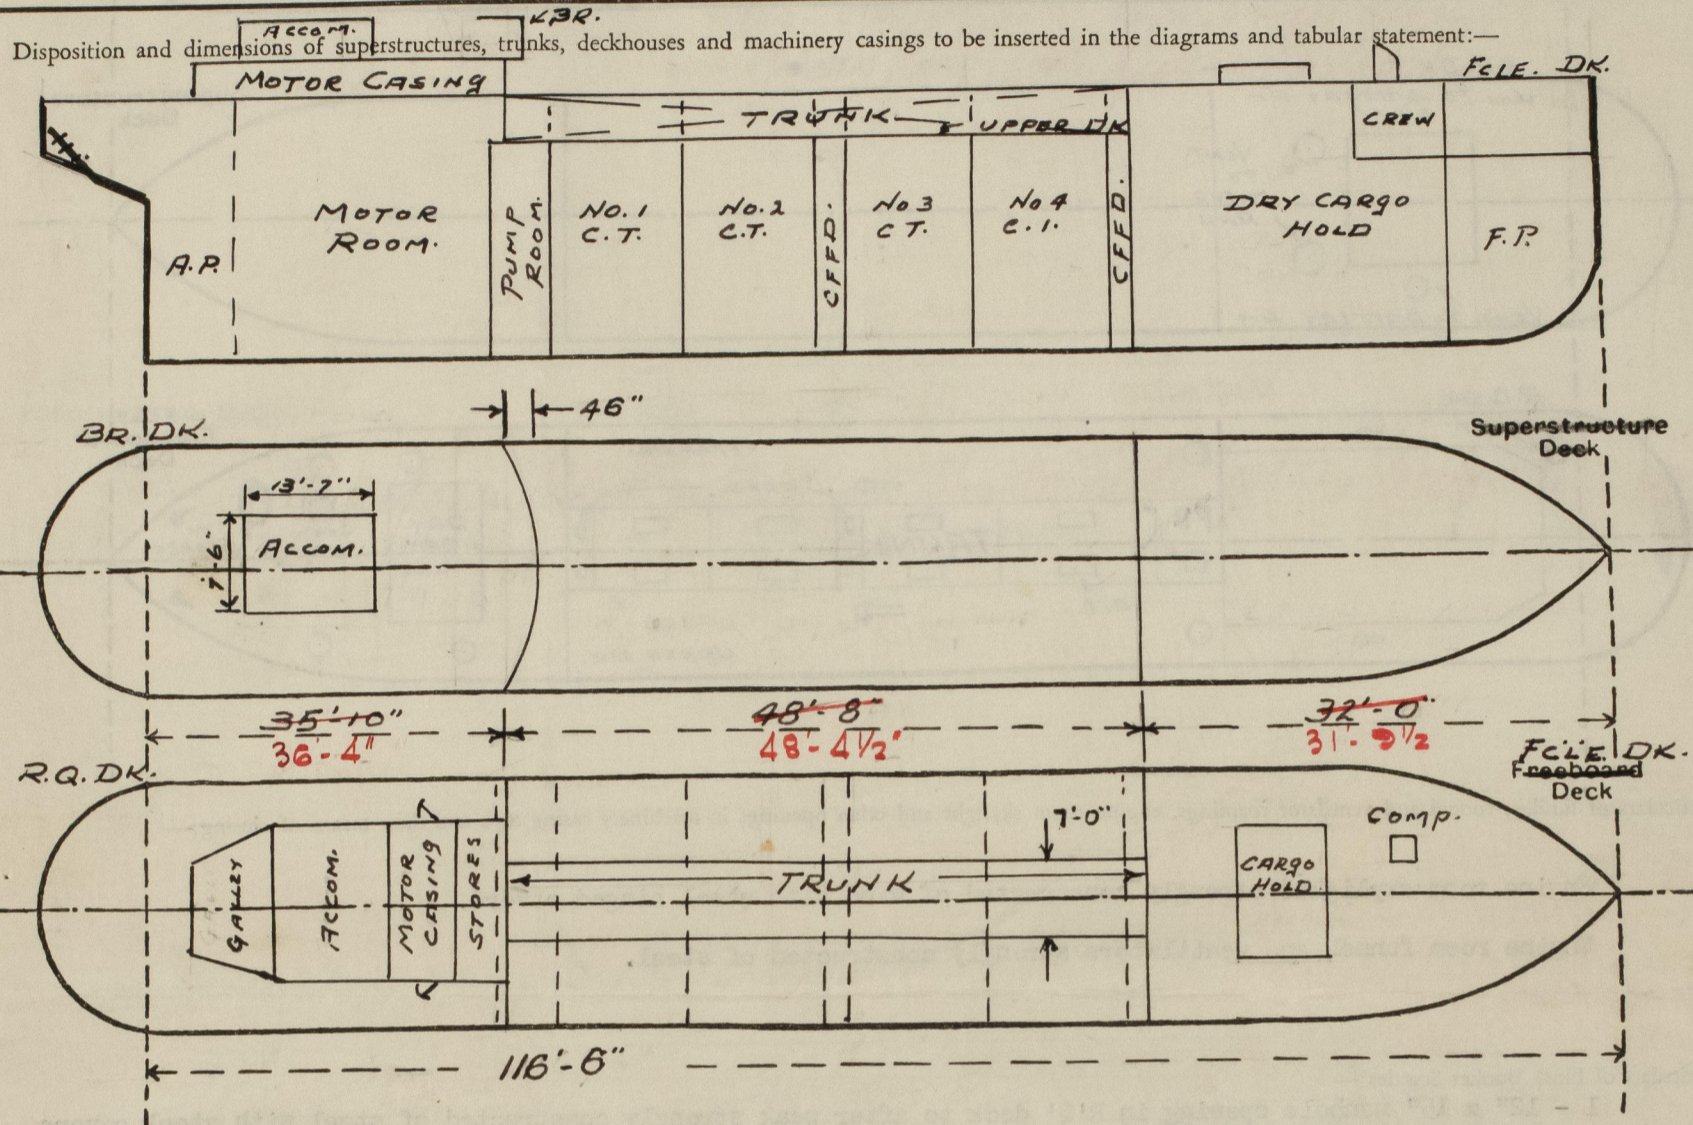 ACCOM.
K BR.
Disposition and dimensions of superstructures, trunks, deckhouses and machinery casings to be inserted in the diagrams and tabular statement:—
MOTOR CASING
FCLE. DK.
TRUNK
UPPER DK
CREW
A.P.
MOTOR
ROOM.
PUMP
ROOM.
NO. 1
C. T.
NO. 2
C.T.
CFFD.
No 3
C T.
No 4
C. T.
CFFD.
DRY CARGO
HOLD
F.P.
46"
BR. DK.
Superstructure
Deck
13'-7"
7'-6"
ACCOM.
35'-10"
36'-4"
48'-8"
48'-4½"
32'-0"
R.Q. DK.
FCLE. DK.
Freeboard
Deck
GALLEY
ACCOM.
MOTOR
CASING
STORES
TRUNK
7'-0"
CARGO
HOLD
Comp.
116'-6"